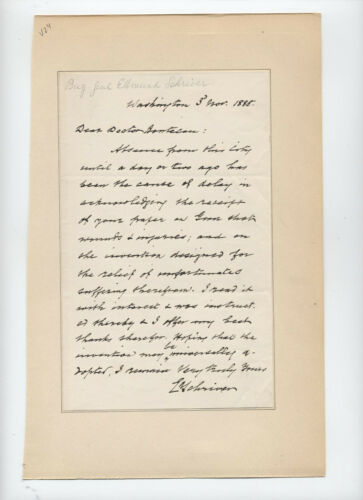 V24
Brig Genl Edmund Schriver
Washington 3d Nov. 1885.
Dear Doctor Bontecou:
Absence from this City
until a day or two ago has
been the cause of delay in
acknowledging the receipt
of your paper on Gun shot
wounds & injuries; and on
the invention designed for
the relief of unfortunates
suffering therefrom. I read it
with interest & was instruct-
ed thereby & I offer my best
thanks therefor. Hoping that the
invention may be universally a-
dopted, I remain Very Truly Yours
Ed Schriver